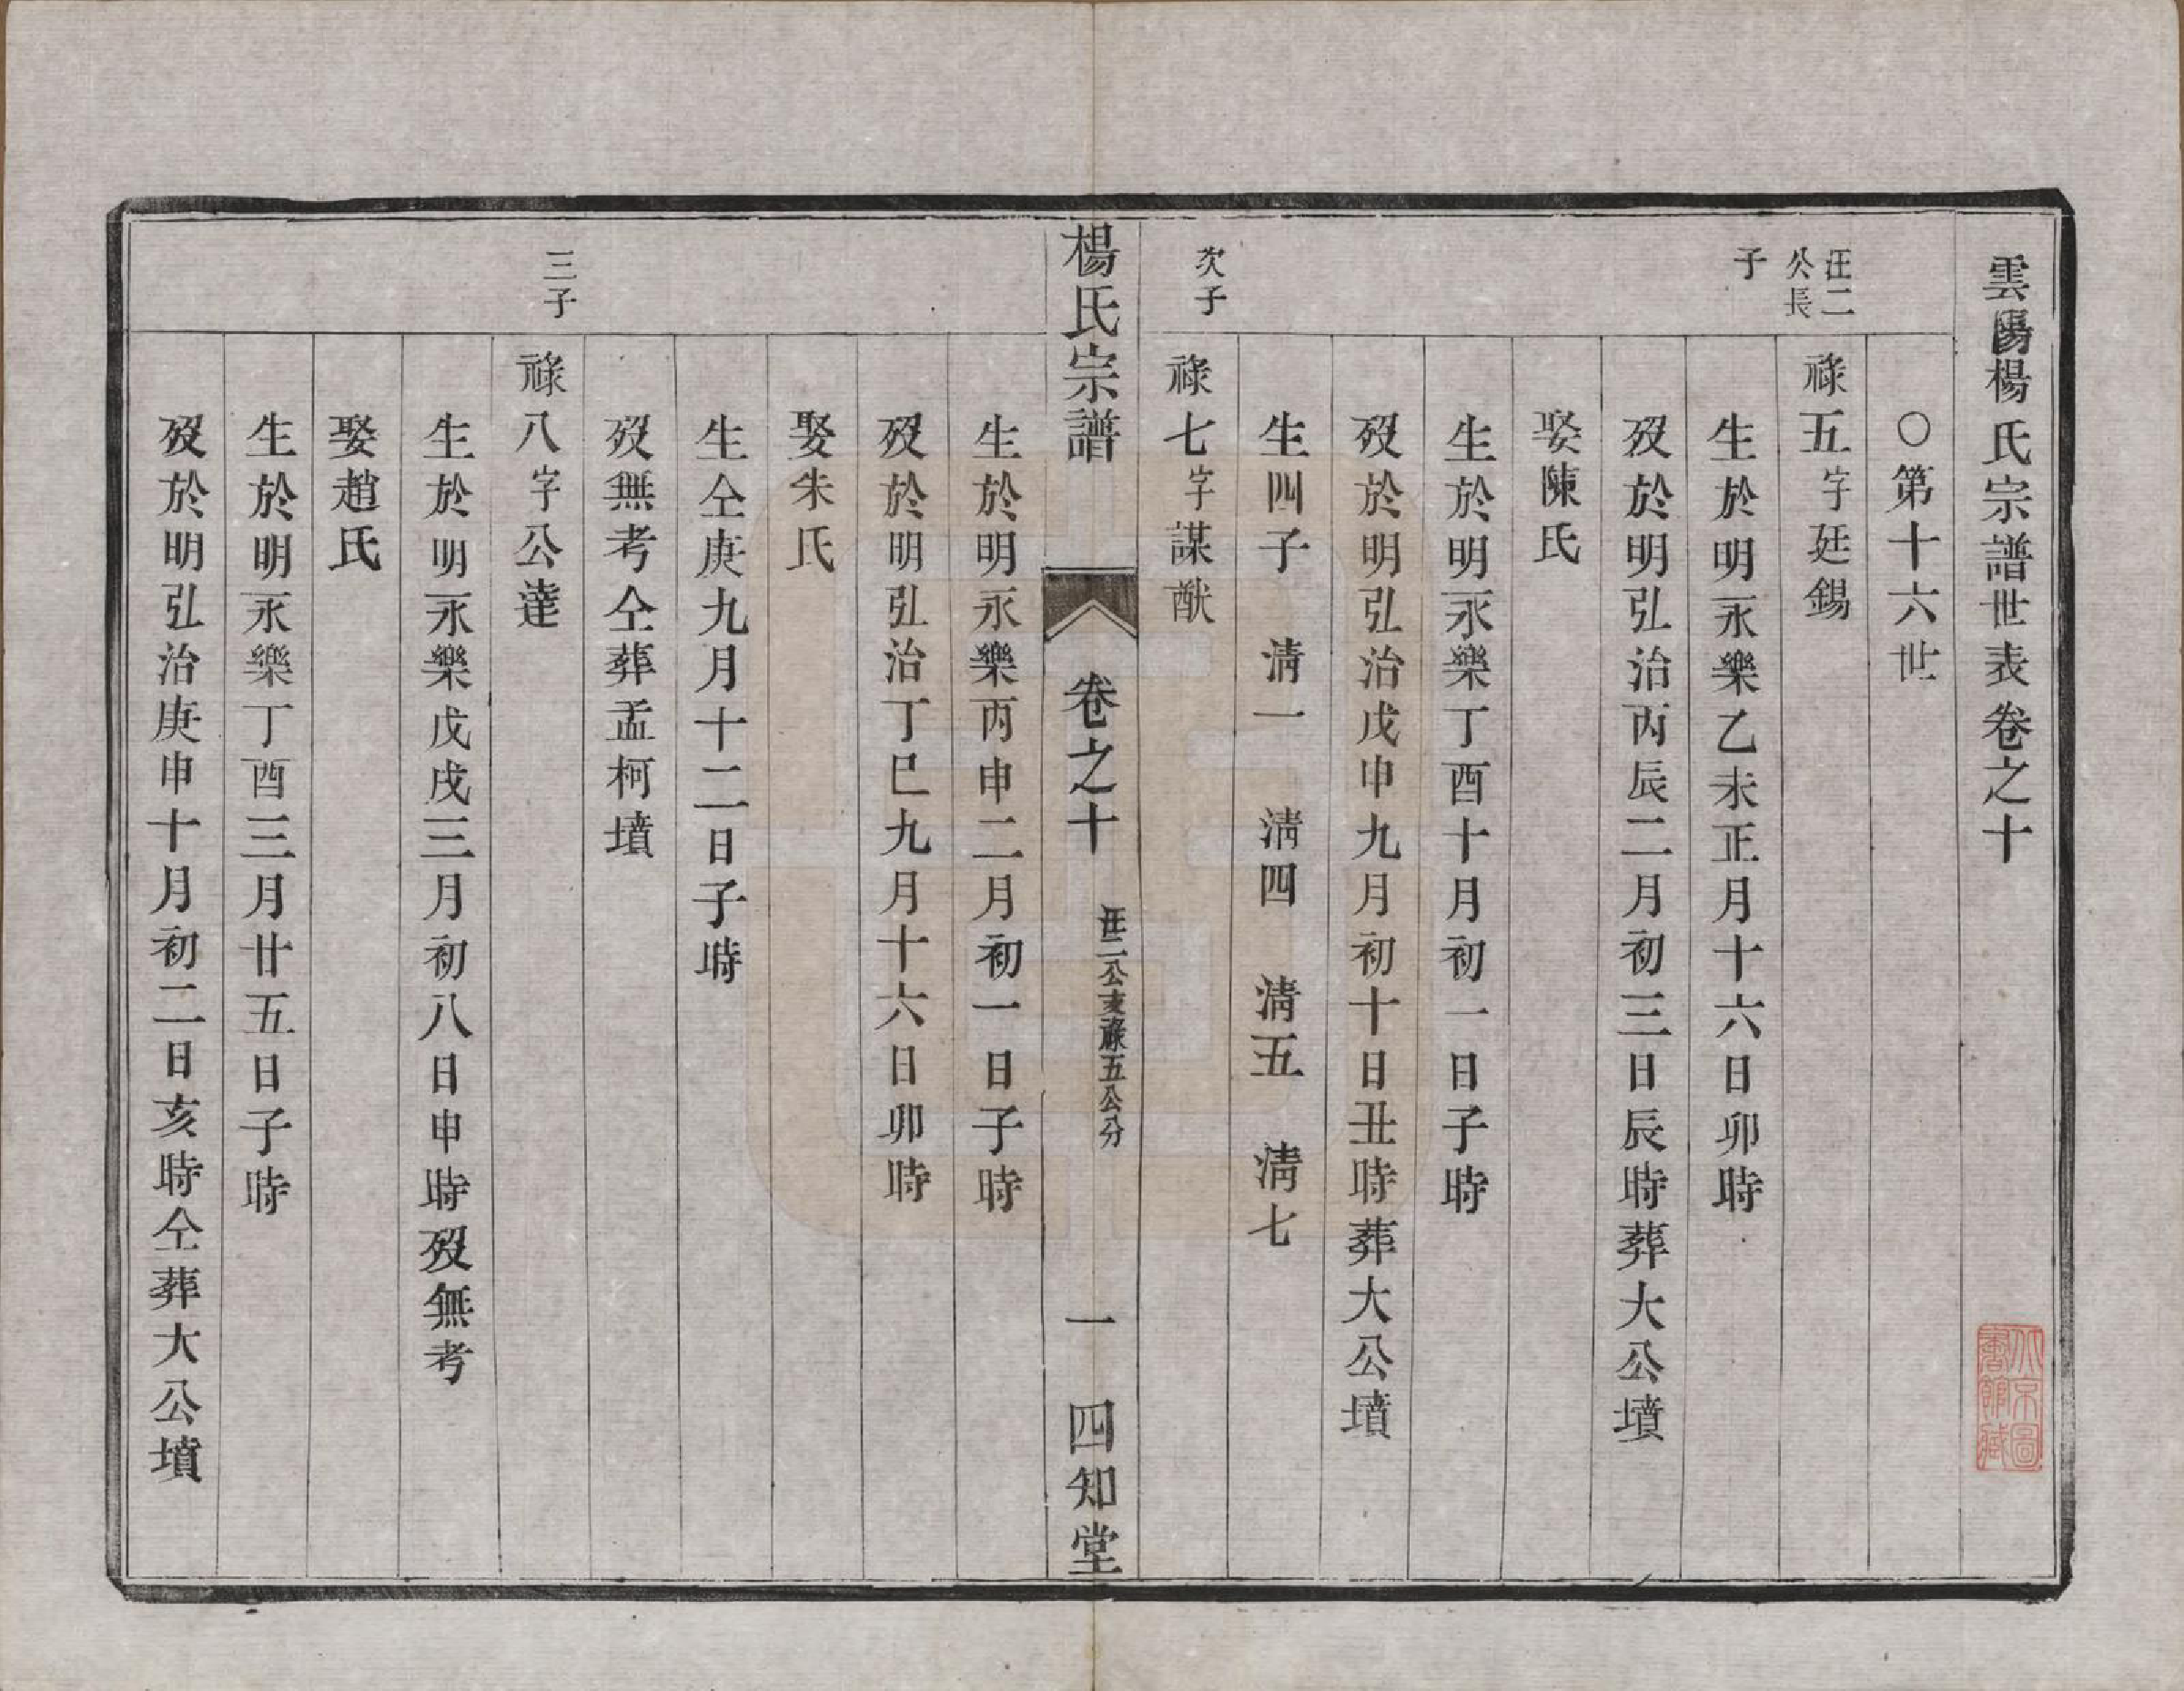 雲陽楊氏宗譜世表卷之十
○第十六世
汪二公長子
祿五字廷錫
生於明永樂乙未正月十六日卯時
歿於明弘治丙辰二月初三日辰時葬大公墳
娶陳氏
生於明永樂丁酉十月初一日子時
歿於明弘治戊申九月初十日丑時葬大公墳
生四子 淸一 淸四 淸五 淸七
次子
祿七字謀猷
楊氏宗譜 卷之十 汪二公支祿五公分 一 四知堂
生於明永樂丙申二月初一日子時
歿於明弘治丁巳九月十六日卯時
娶朱氏
生仝庚九月十二日子時
歿無考仝葬孟柯墳
三子
祿八字公達
生於明永樂戊戌三月初八日申時歿無考
娶趙氏
生於明永樂丁酉三月廿五日子時
歿於明弘治庚申十月初二日亥時仝葬大公墳